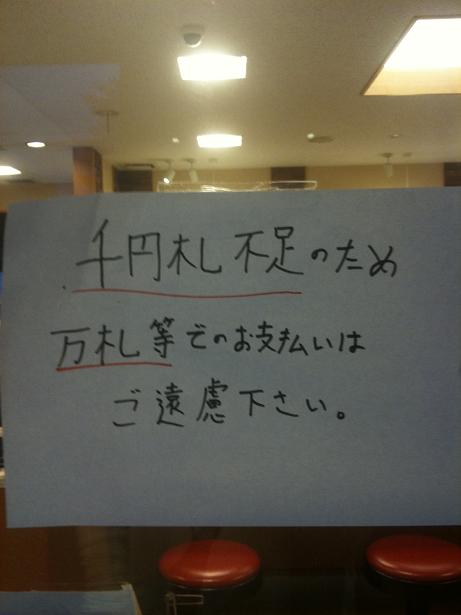 千円札不足のため
万札等でのお支払いは
ご遠慮下さい。